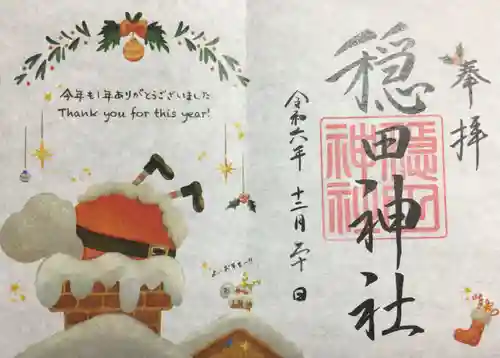 今年も1年ありがとうございました
Thank you for this year!
奉拝
穏田神社
穏田
神社
令和六年 十二月 二十日